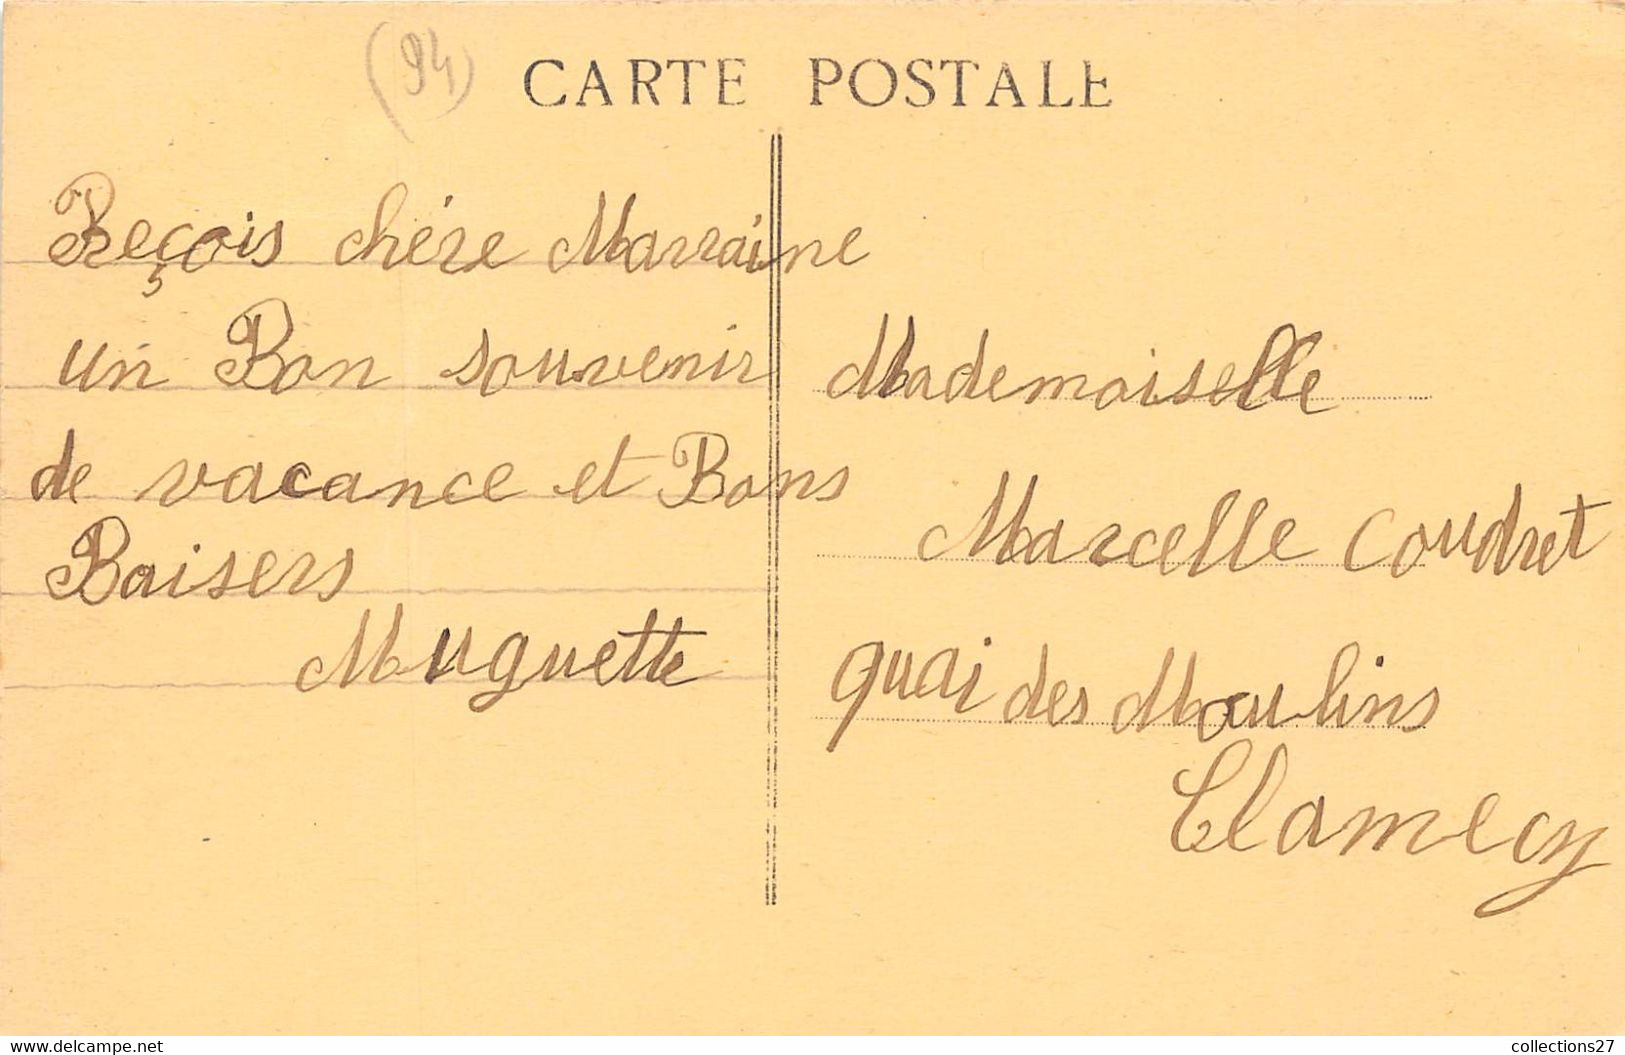 (94)
CARTE POSTALE
Reçois chére Marraine
un Bon souvenir
de vacance et Bons
Baisers
Muguette
Mademoiselle
Marcelle Coudret
quai des Moulins
Clamecy
www.delcampe.net
collections27